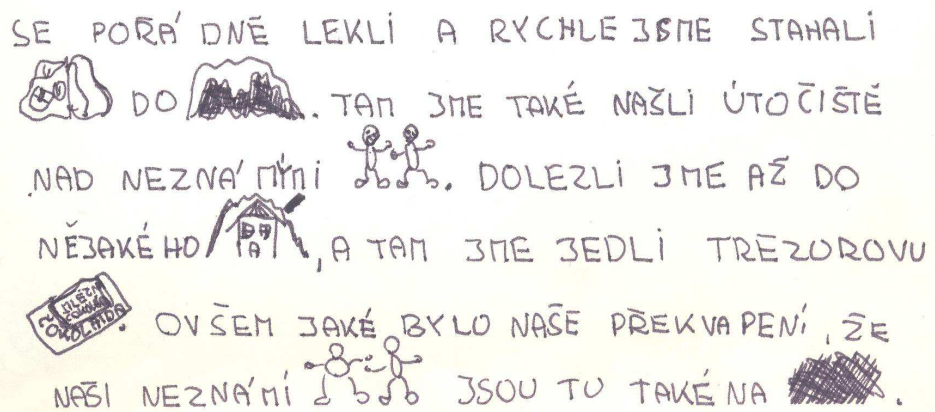 SE POŘÁDNĚ LEKLI A RYCHLE JSME STAHALI
DO . TAM JME TAKÉ NAŠLI ÚTOČIŠTĚ
NAD NEZNÁMÝMI . DOLEZLI JME AŽ DO
NĚJAKÉHO , A TAM JME JEDLI TREZOROVU
ČOKOLÁDA. OVŠEM JAKÉ BYLO NAŠE PŘEKVAPENÍ, ŽE
NAŠI NEZNÁMÍ JSOU TU TAKÉ NA .